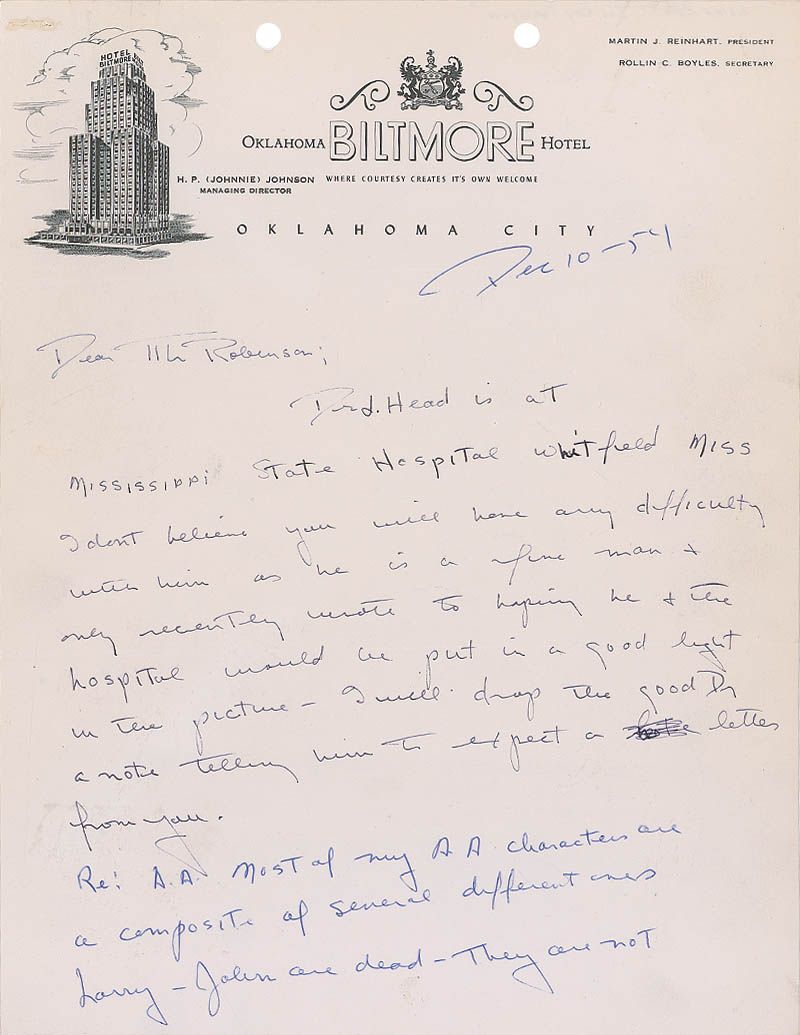 HOTEL
BILTMORE
MARTIN J. REINHART. PRESIDENT
ROLLIN C. BOYLES. SECRETARY
OKLAHOMA BILTMORE HOTEL
H. P. (JOHNNIE) JOHNSON
MANAGING DIRECTOR
WHERE COURTESY CREATES IT'S OWN WELCOME
OKLAHOMA CITY
Dec 10-54
Dear Mr Robinson;
Dr. Head is at
Mississippi State Hospital Whitfield Miss
I dont believe you will have any difficulty
with him as he is a fine man +
only recently wrote to hoping he + the
hospital would be put in a good light
in the picture - I will drop the good Dr
a note telling him to expect a letter
from you.
Re: A.A. Most of my AA characters are
a composite of several different ones
Larry - John are dead - They are not